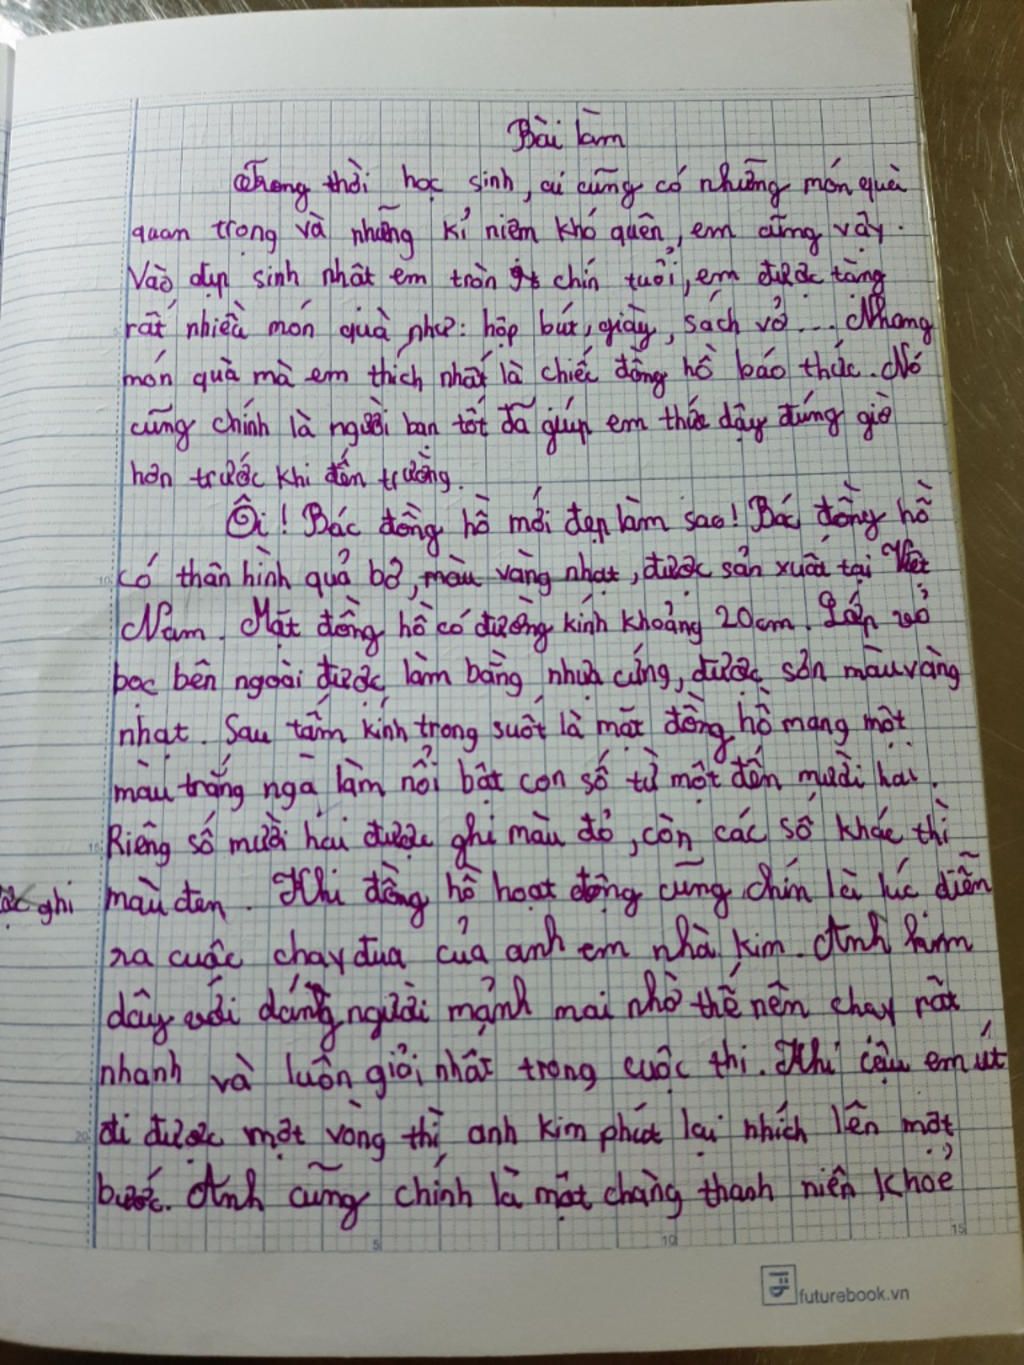 Bài làm
Trong thời học sinh, ai cũng có những món quà
quan trọng và những kỉ niệm khó quên, em cũng vậy.
Vào dịp sinh nhật em tròn chín tuổi, em được tặng
rất nhiều món quà như: hộp bút, giày, sách vở... Nhưng
món quà mà em thích nhất là chiếc đồng hồ báo thức. Nó
cũng chính là người bạn tốt đã giúp em thức dậy đúng giờ
hơn trước khi đến trường.
Ôi! Bác đồng hồ mới đẹp làm sao! Bác đồng hồ
có thân hình quả bơ, màu vàng nhạt, được sản xuất tại Việt
Nam. Mặt đồng hồ có đường kính khoảng 20cm. Lớp vỏ
bọc bên ngoài được làm bằng nhựa cứng, được sơn màu vàng
nhạt. Sau tấm kính trong suốt là mặt đồng hồ mang một
màu trắng ngà làm nổi bật con số từ một đến mười hai.
Riêng số mười hai được ghi màu đỏ, còn các số khác thì
ghi màu đen. Khi đồng hồ hoạt động cũng chín là lúc diễn
ra cuộc chạy đua của anh em nhà kim. Anh kim
dây với dáng người mảnh mai nhờ thế nên chạy rất
nhanh và luôn giỏi nhất trong cuộc thi. Khi cậu em út
đi được một vòng thì anh kim phút lại nhích lên một
bước. Anh cũng chính là một chàng thanh niên khoẻ
5
10
15
futurebook.vn